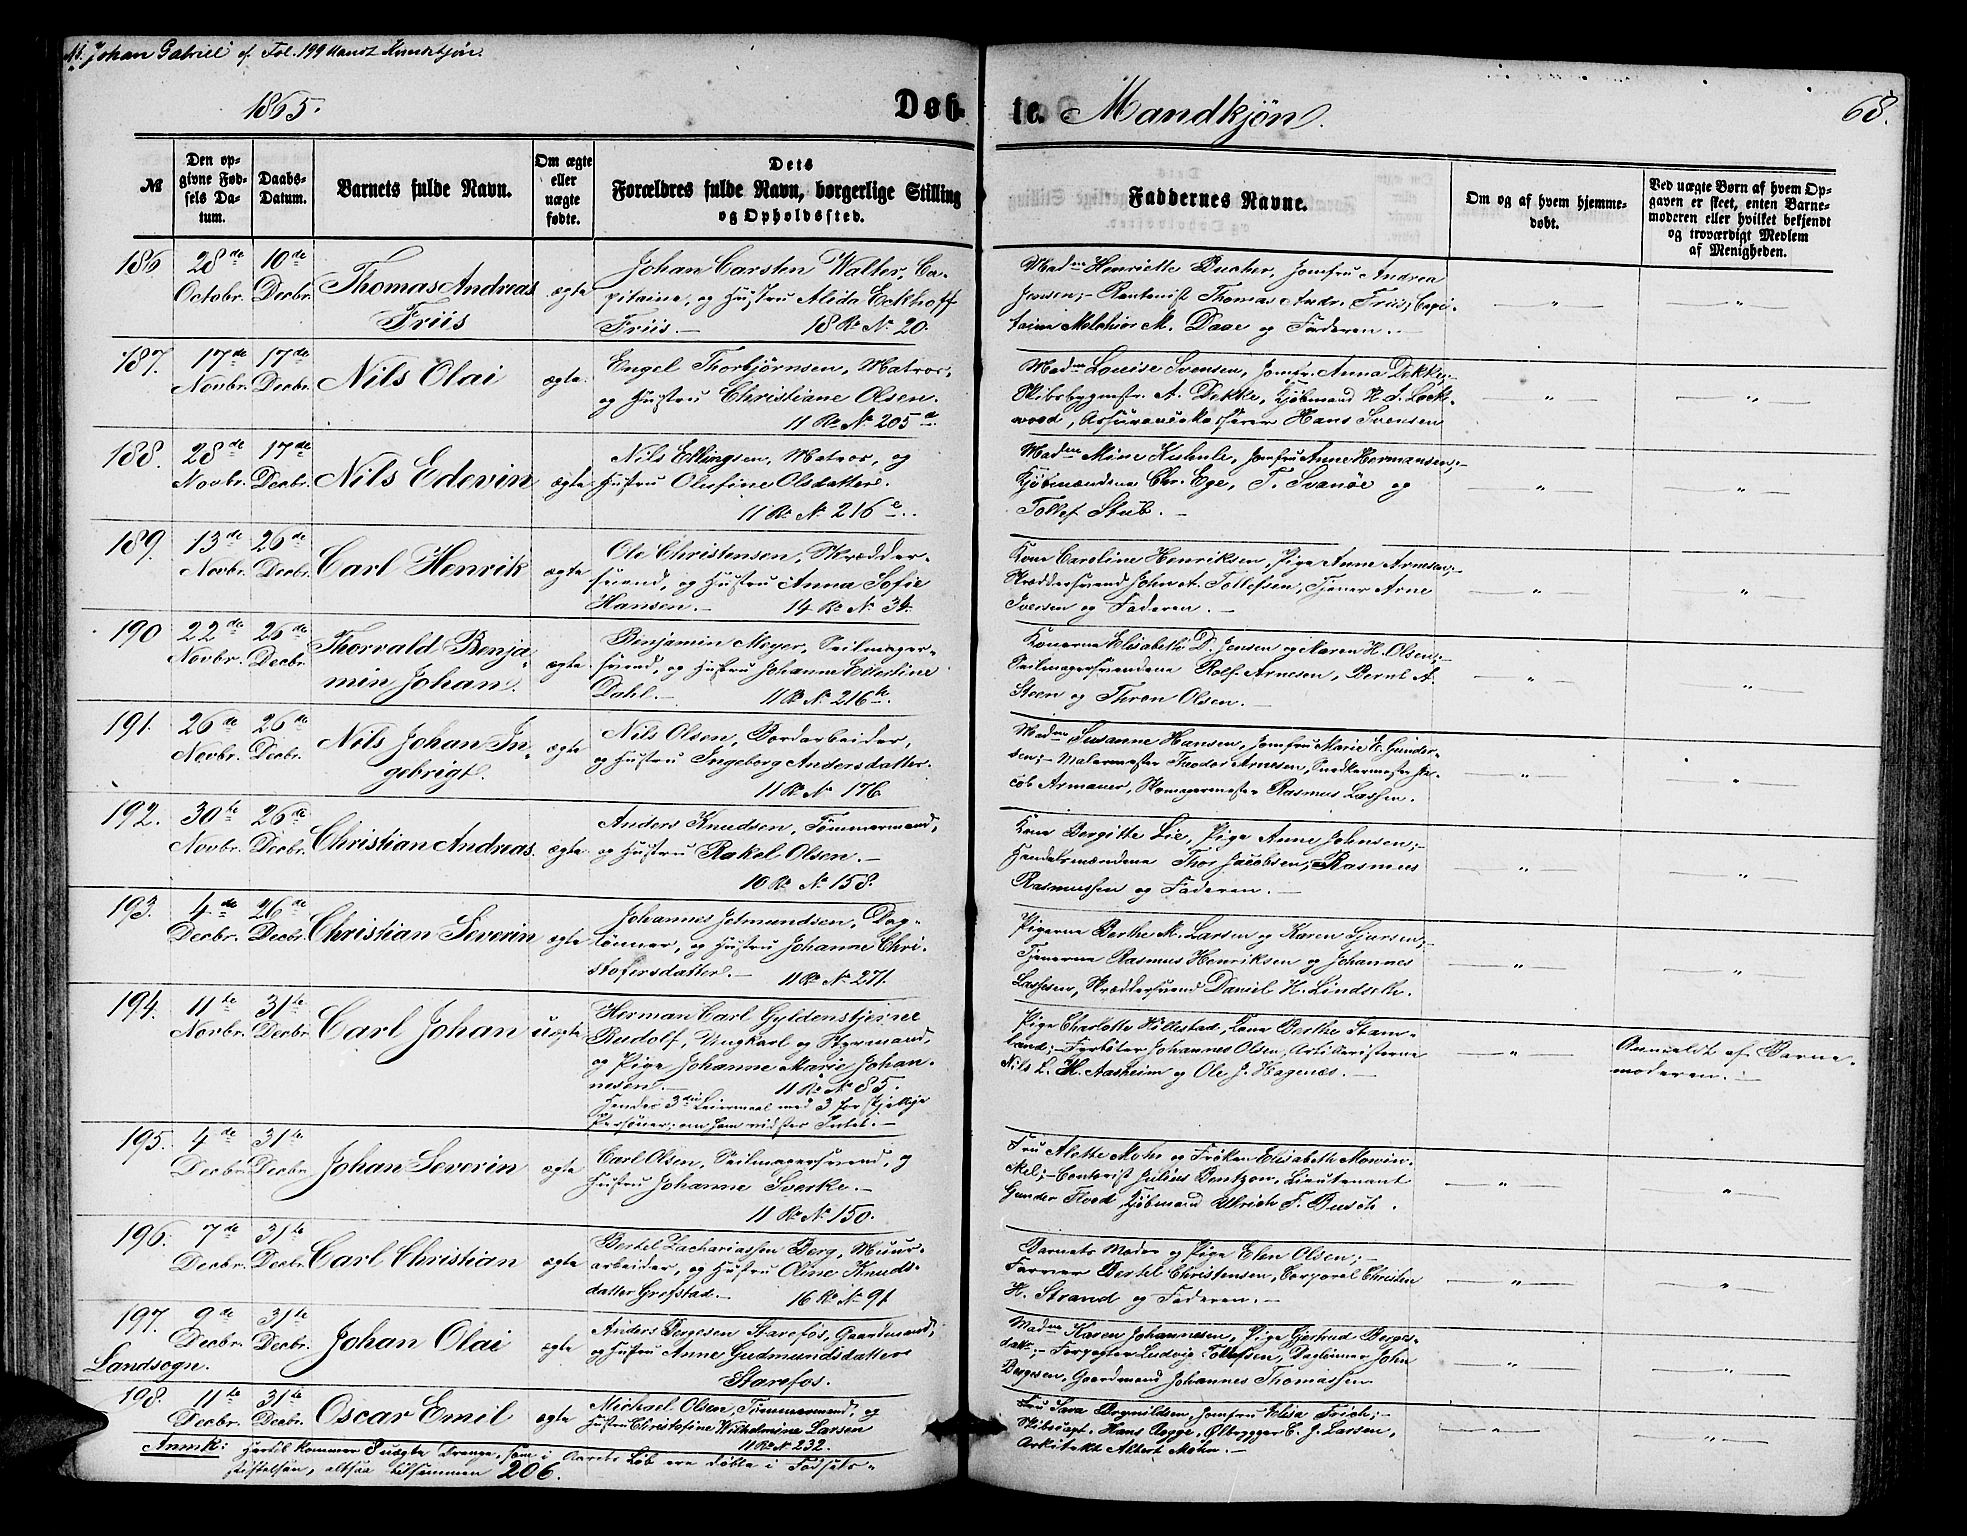 Johan Gabriel cf. Fol. 199 Kvindekjøn.
1865.
Døbte. Mandkjøn.
68.
№
Den opgivne Fødsels Datum.
Daabs-Datum.
Barnets fulde Navn.
Om ægte eller uægte fødte.
Dets Forældres fulde Navn, borgerlige Stilling og Opholdssted.
Faddernes Navne.
Om og af hvem hjemmedøbt.
Ved uægte Børn af hvem Opgaven er skeet, enten Barnemoderen eller hvilket bekjendt og troværdigt Medlem af Menigheden.
186 28de Octobr. 10de Decbr. Thomas Andreas Friis ægte
Johan Carsten Walter, Ca-
pitaine, og Hustru Alida Eckhoff
Friis.— 18 Re № 20.
Madme Henriette Ducher, Jomfru Andrea
Jensen;— Rentenist Thomas Andr. Friis, Capi-
taine Melchior M. Daae og Faderen.—
187. 17de Novbr. 17de Decbr. Nils Olai ægte.
Engel Thorbjørnsen, Matros,
og Hustru Christiane Olsen.
11 Re № 205 d
Madme Louise Svensen, Jomfr. Anna Dekke;—
Skibsbygmstr. A. Dekke, Kjøbmand H. d. Lock-
wood, Assurancekasserer Hans Svensen
188. 28de Novbr. 17de Decbr. Nils Edevin ægte
Nils Ellingsen, Matros, og
Hustru Olufine Olsdatter.
11 Re № 216 c.
Madme Mine Kuhnle, Jomfru Anne Hermansen;—
Kjøbmændene Chr. Ege, T. Svanøe og
Tollef Stub.—
189. 13de Novbr. 26de Decbr. Carl Henrik ægte
Ole Christensen, Skrædder-
svend, og Hustru Anna Sofie
Hansen.— 14 Re № 34.
Kone Caroline Henriksen, Pige Anne Arnesen;—
Skræddersvend John A. Tollefsen, Tjener Arne
Iversen og Faderen.—
190 22de Novbr. 26de Decbr. Thorvald Benja-
min Johan. ægte
Benjamin Meyer, Seilmager-
svend, og Hustru Johanne Ederline
Dahl.— 11 Re № 216 b.
Konerne Elisabeth D. Jensen og Maren H. Olsen;—
Seilmagersvendene Rolf Arnesen, Bernt A.
Steen og Thron Olsen.—
191. 26de Novbr. 26de Decbr. Nils Johan In-
gebrigt. ægte
Nils Olsen, Bordarbeider,
og Hustru Ingeborg Andersdatter.
11 Re № 176
Madme Susanne Hansen, Jomfru Marie E. Gunder-
sen;— Malermester Theodor Arnesen, Snedkermester Ja-
cob Armauer, Skomagermester Rasmus Lassen.
192. 30te Novbr. 26de Decbr. Christian Andreas. ægte
Anders Knudsen, Tømmermand,
og Hustru Rakel Olsen.—
10 Re № 158.
Kone Bergitte Lie, Pige Anne Johnsen;—
Handelsmændene Thor Jacobsen, Rasmus
Rasmussen og Faderen.—
193. 4de Decbr. 26de Decbr. Christian Severin ægte
Johannes Jetmundsen, Dag-
lønner, og Hustru Johanne Chri-
stofersdatter.— 11 Re № 271.
Pigerne Berthe M. Larsen og Karen Sjursen;—
Tjenerne Rasmus Henriksen og Johannes
Lassesen, Skræddersvend Daniel H. Lindseth.
194. 11te Novbr. 31te Decbr. Carl Johan uægte
Herman Carl Gyldenstjerne
Rudolf, Ungkarl og Styrmand,
og Pige Johanne Marie Johan-
nesen.— 11 Re № 85.
Hendes 3die Leiermaal med 3 forskjellige
Personer; om ham vidstes Intet.—
Pige Charlotte Hillestad, Kone Berthe Stam-
land;— Fyrbøter Johannes Olsen, Artilleristerne
Nils L. H. Aasheim og Ole J. Hagenæs.—
Anmeldt af Barne-
moderen.—
195. 4de Decbr. 31te Decbr. Johan Severin ægte
Carl Olsen, Seilmagersvend, og
Hustru Johanne Sverke.—
11 Re № 150.
Fru Alette Mohr og Frøken Elisabeth Mowin-
kel;— Contorist Julius Bentzon, Lieutenant
Gunder Flood, Kjøbmand Ulrich F. Busch.
196. 7de Decbr. 31te Decbr. Carl Christian ægte
Bertel Zachariassen Berg, Muur-
arbeider, og Hustru Oline Knuds-
datter Grefstad.— 16 Re № 91
Barnets Moder og Pige Elen Olsen;—
Farver Bertel Christensen, Corporal Christen
H. Strand og Faderen.—
197. Landsogn. 9de Decbr. 31te Decbr. Johan Olai ægte
Anders Børgesen Starefos, Gaardmand,
og Hustru Anne Gudmundsdatter
Starefos.
Madme Karen Johannesen, Pige Gjertrud Børges-
datt.;— Forpagter Ludvig Tollefsen, Daglønner John
Børgesen, Gaardmand Johannes Thomassen
198. 11te Decbr. 31te Decbr. Oscar Emil ægte
Michael Olsen, Tømmermand, og
Hustru Christofine Wilhelmine Larsen
11 Re № 232.
Fru Sara Brynildsen, Jomfru Elisa Frich;—
Skibscapt. Hans Aagge, Ølbrygger E. J. Larsen,
Arkitekt Albert Mohn.—
Anmk: Hertil kommer 8 uægte Drenge, som i Aarets Løb ere døbte i Fødsels-
stiftelsen, altsaa tilsammen 206.